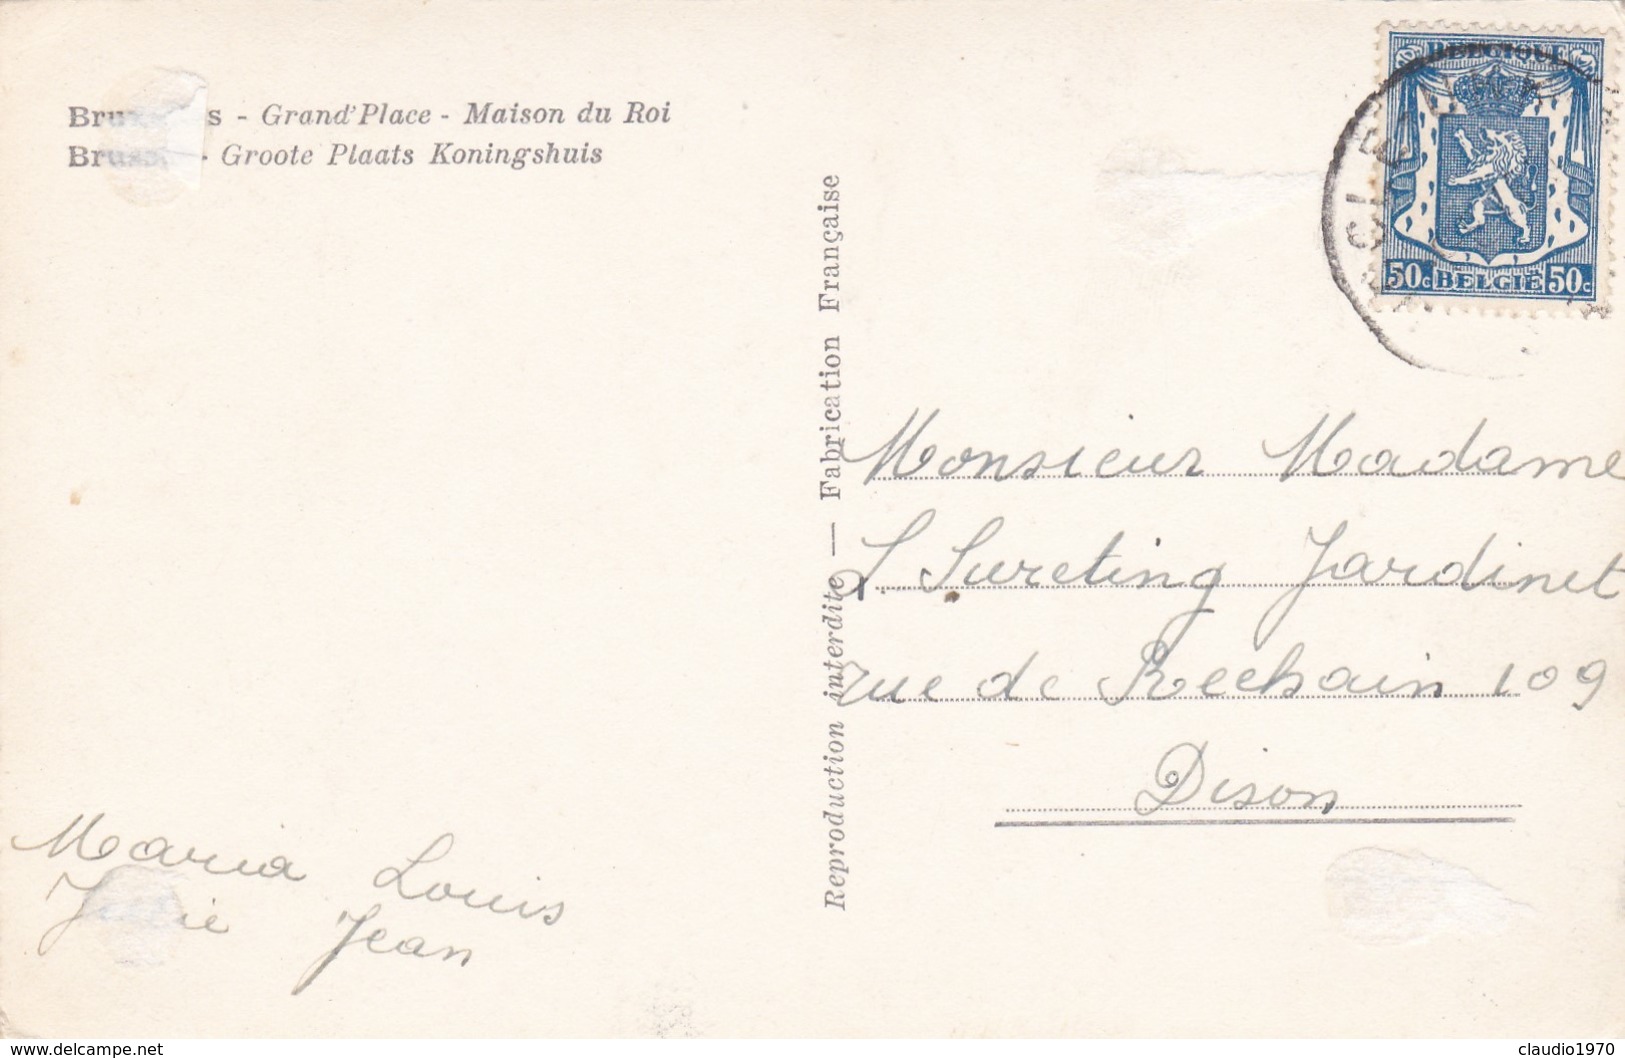 - Grand'Place - Maison du Roi
- Groote Plaats Koningshuis
Reproduction interdite — Fabrication Française
BELGIQUE
50c BELGIE 50c
Monsieur Madame
L Sureting Jardinet
rue de Rechain 109
Dison
Maria Louis
Jean
www.delcampe.net
claudio1970